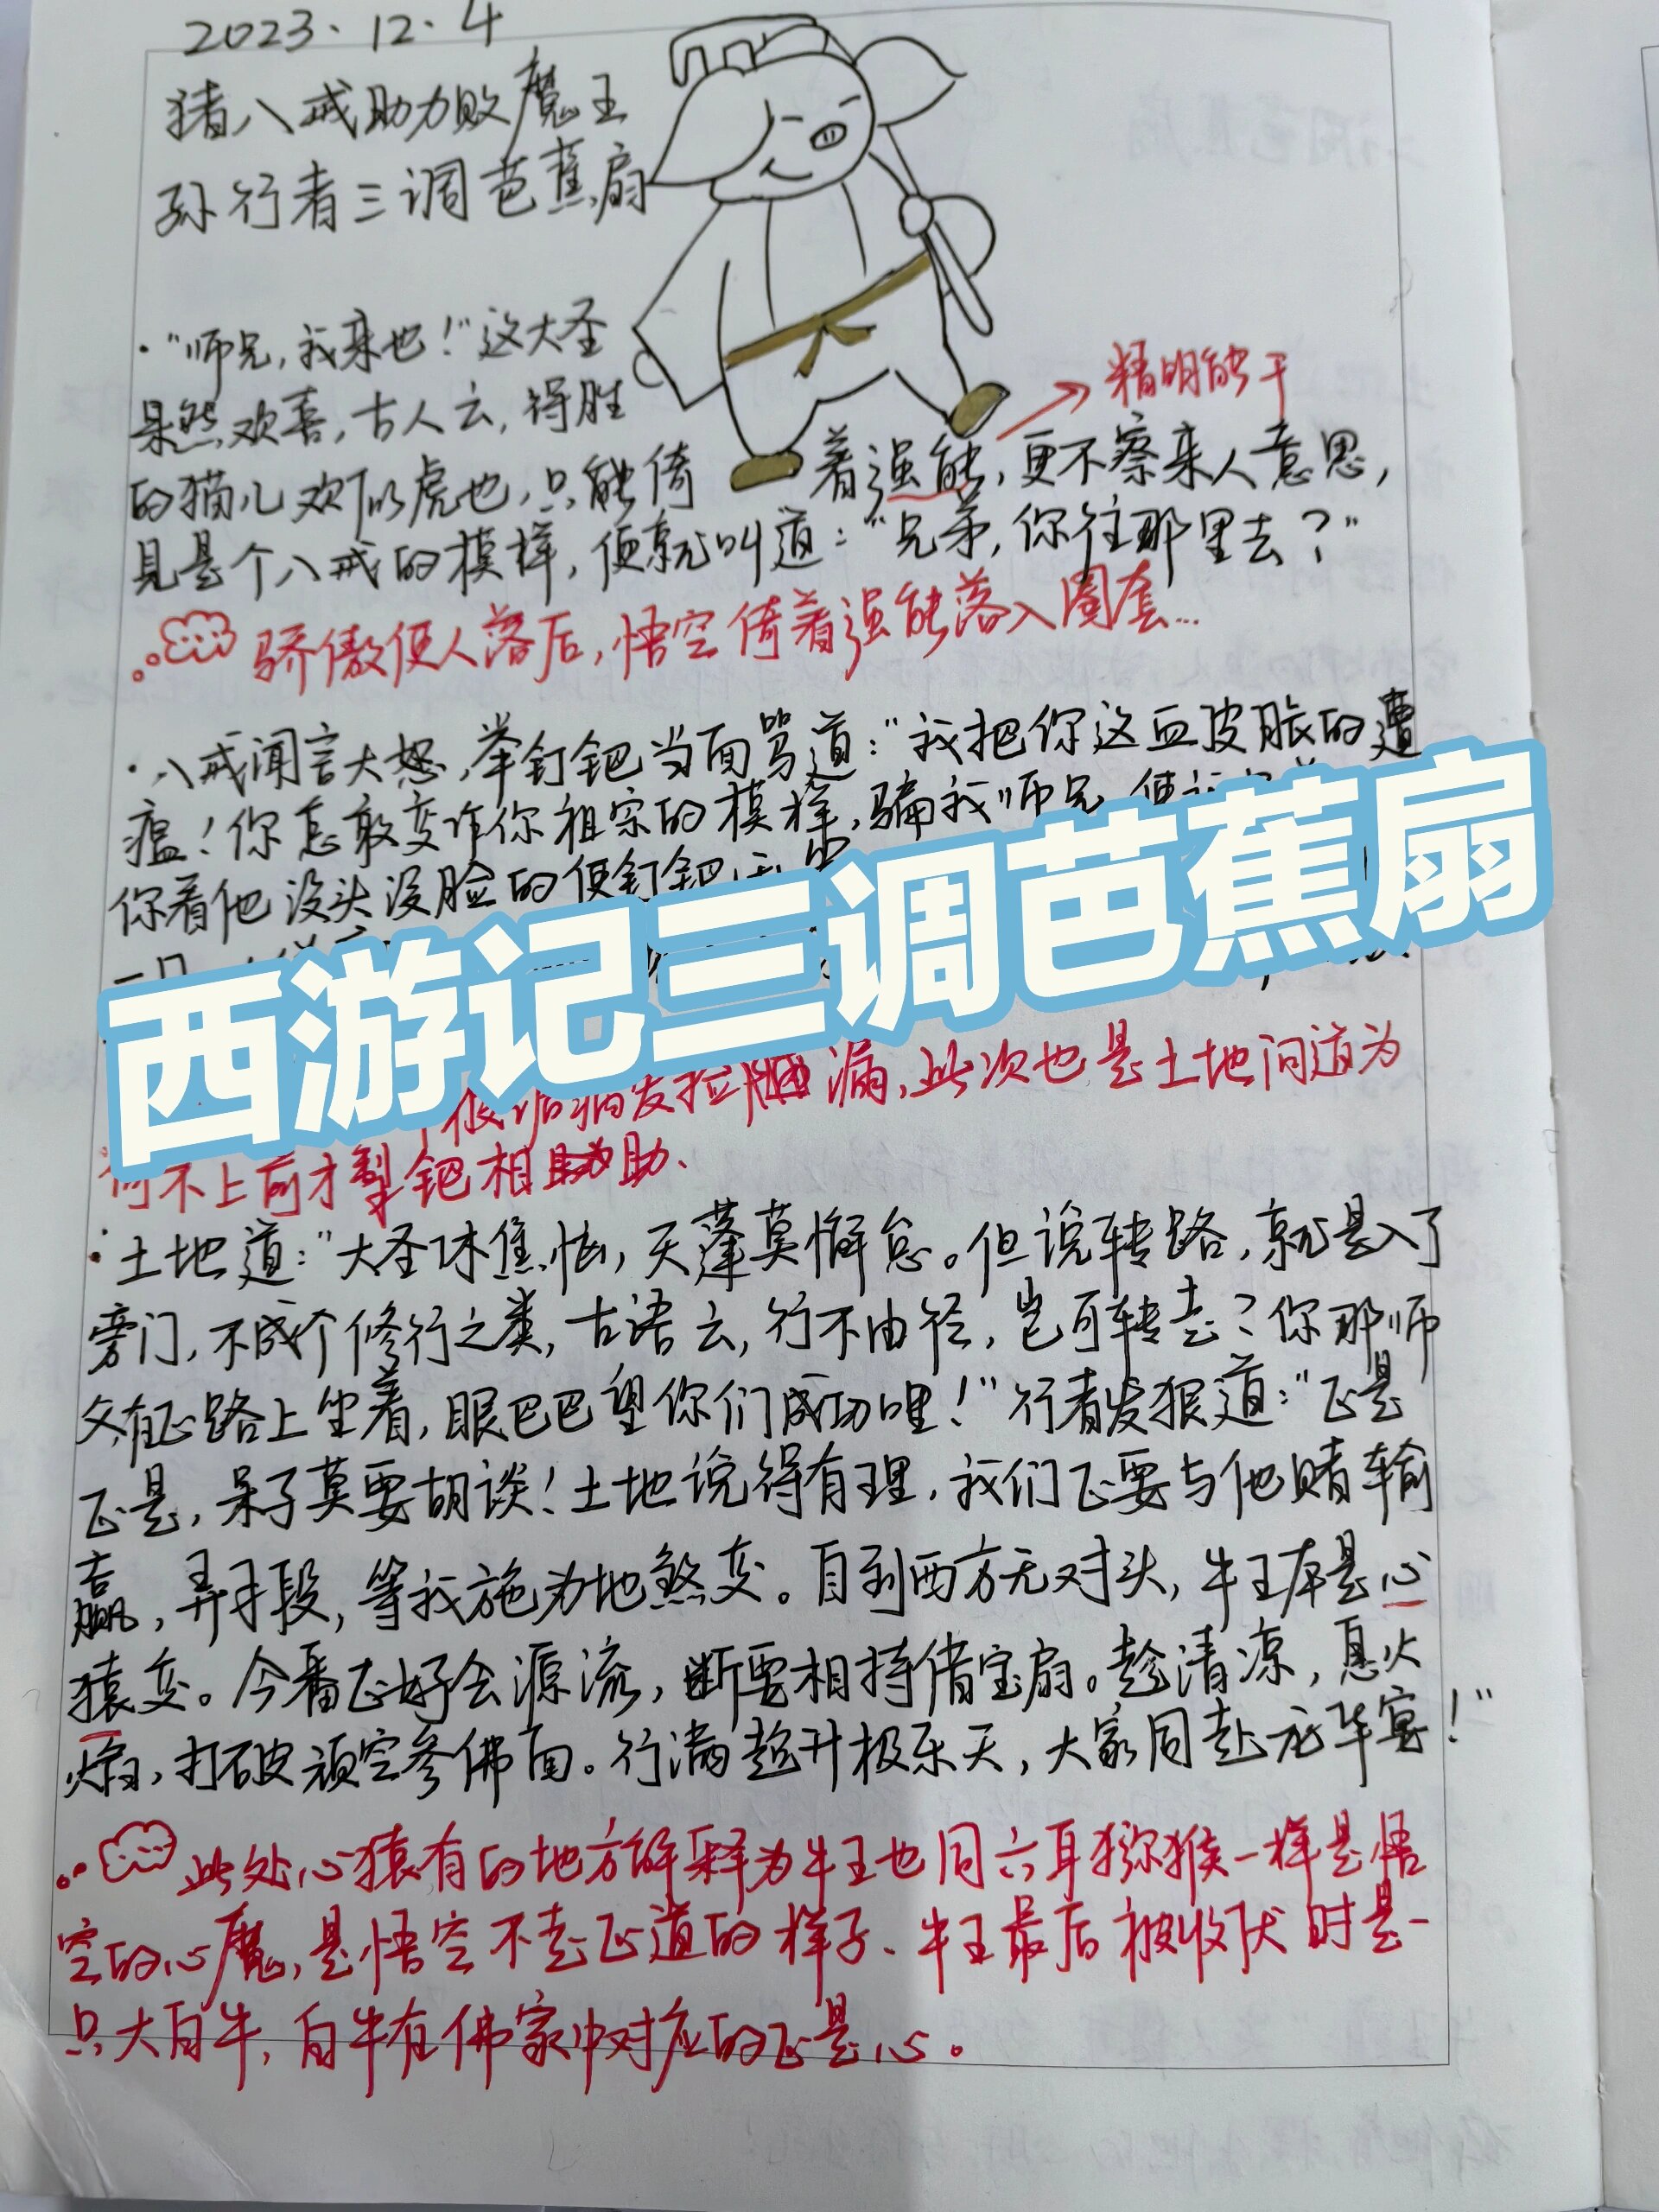 2023.12.4
猪八戒助力败魔王
孙行者三调芭蕉扇
·“师兄,我来也!”这大圣
果然欢喜,古人云,得胜
的猫儿欢似虎也,只能倚
着强能,更不察来人意思,
→精明能干
见是个八戒的模样,便就叫道:“兄弟,你往那里去?”
骄傲使人落后,悟空倚着强能落入圈套...
·八戒闻言大怒,举钉钯当面骂道:“我把你这血皮胀的遭
瘟!你怎敢变作你祖宗的模样,骗我师兄,使
你看他没头没脸的使钉钯
西游记三调芭蕉扇
漏,此次也是土地问道为
何不上前才掣钯相助.
·土地道:“大圣休焦恼,天蓬莫懈怠。但说转路,就是入了
旁门,不成个修行之类,古语云,行不由径,岂可转走?你那师
父在正路上坐着,眼巴巴望你们成功哩!”行者发狠道:“正是
正是,呆子莫要胡谈!土地说得有理,我们正要与他赌输
赢,弄手段,等我施为地煞变。自到西方无对头,牛王本是心
猿变。今番正好会源流,断要相持借宝扇。趁清凉,息火
焰,打破顽空参佛面。行满超升极乐天,大家同赴龙华宴!”
此处心猿有的地方解释为牛王也同六耳猕猴一样是悟
空的心魔,是悟空不走正道的样子、牛王最后被收伏时是一
只大白牛,白牛在佛家中对应的正是心。